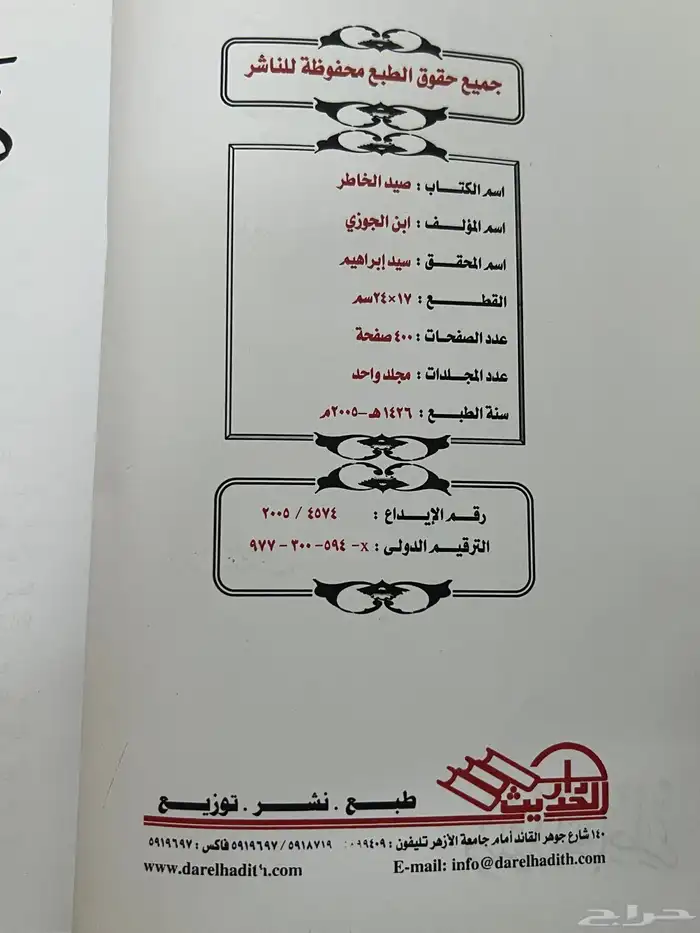 جميع حقوق الطبع محفوظة للناشر
اسم الكتـــاب : صيد الخاطر
اسم المؤلـــف : ابن الجوزي
اسم المحقـــق : سيد إبراهيم
القطـــــــــع : ١٧×٢٤سم
عدد الصفحـات : ٤٠٠ صفحة
عدد المجـلدات : مجلد واحد
سنة الطبـــع : ١٤٢٦هـ-٢٠٠٥م
رقــم الإيــداع : ٤٥٧٤ / ٢٠٠٥
الترقيــم الدولى : x- ٥٩٤ - ٣٠٠ - ٩٧٧
دار الحديث
طبـــع . نشـــر . توزيـــع
١٤٠ شارع جوهر القائد أمام جامعة الأزهر تليفون : ٥٩١٨٧١٩ / ٥٩١٩٦٩٧ فاكس : ٥٩١٩٦٩٧
E-mail: info@darelhadith.com
حراج